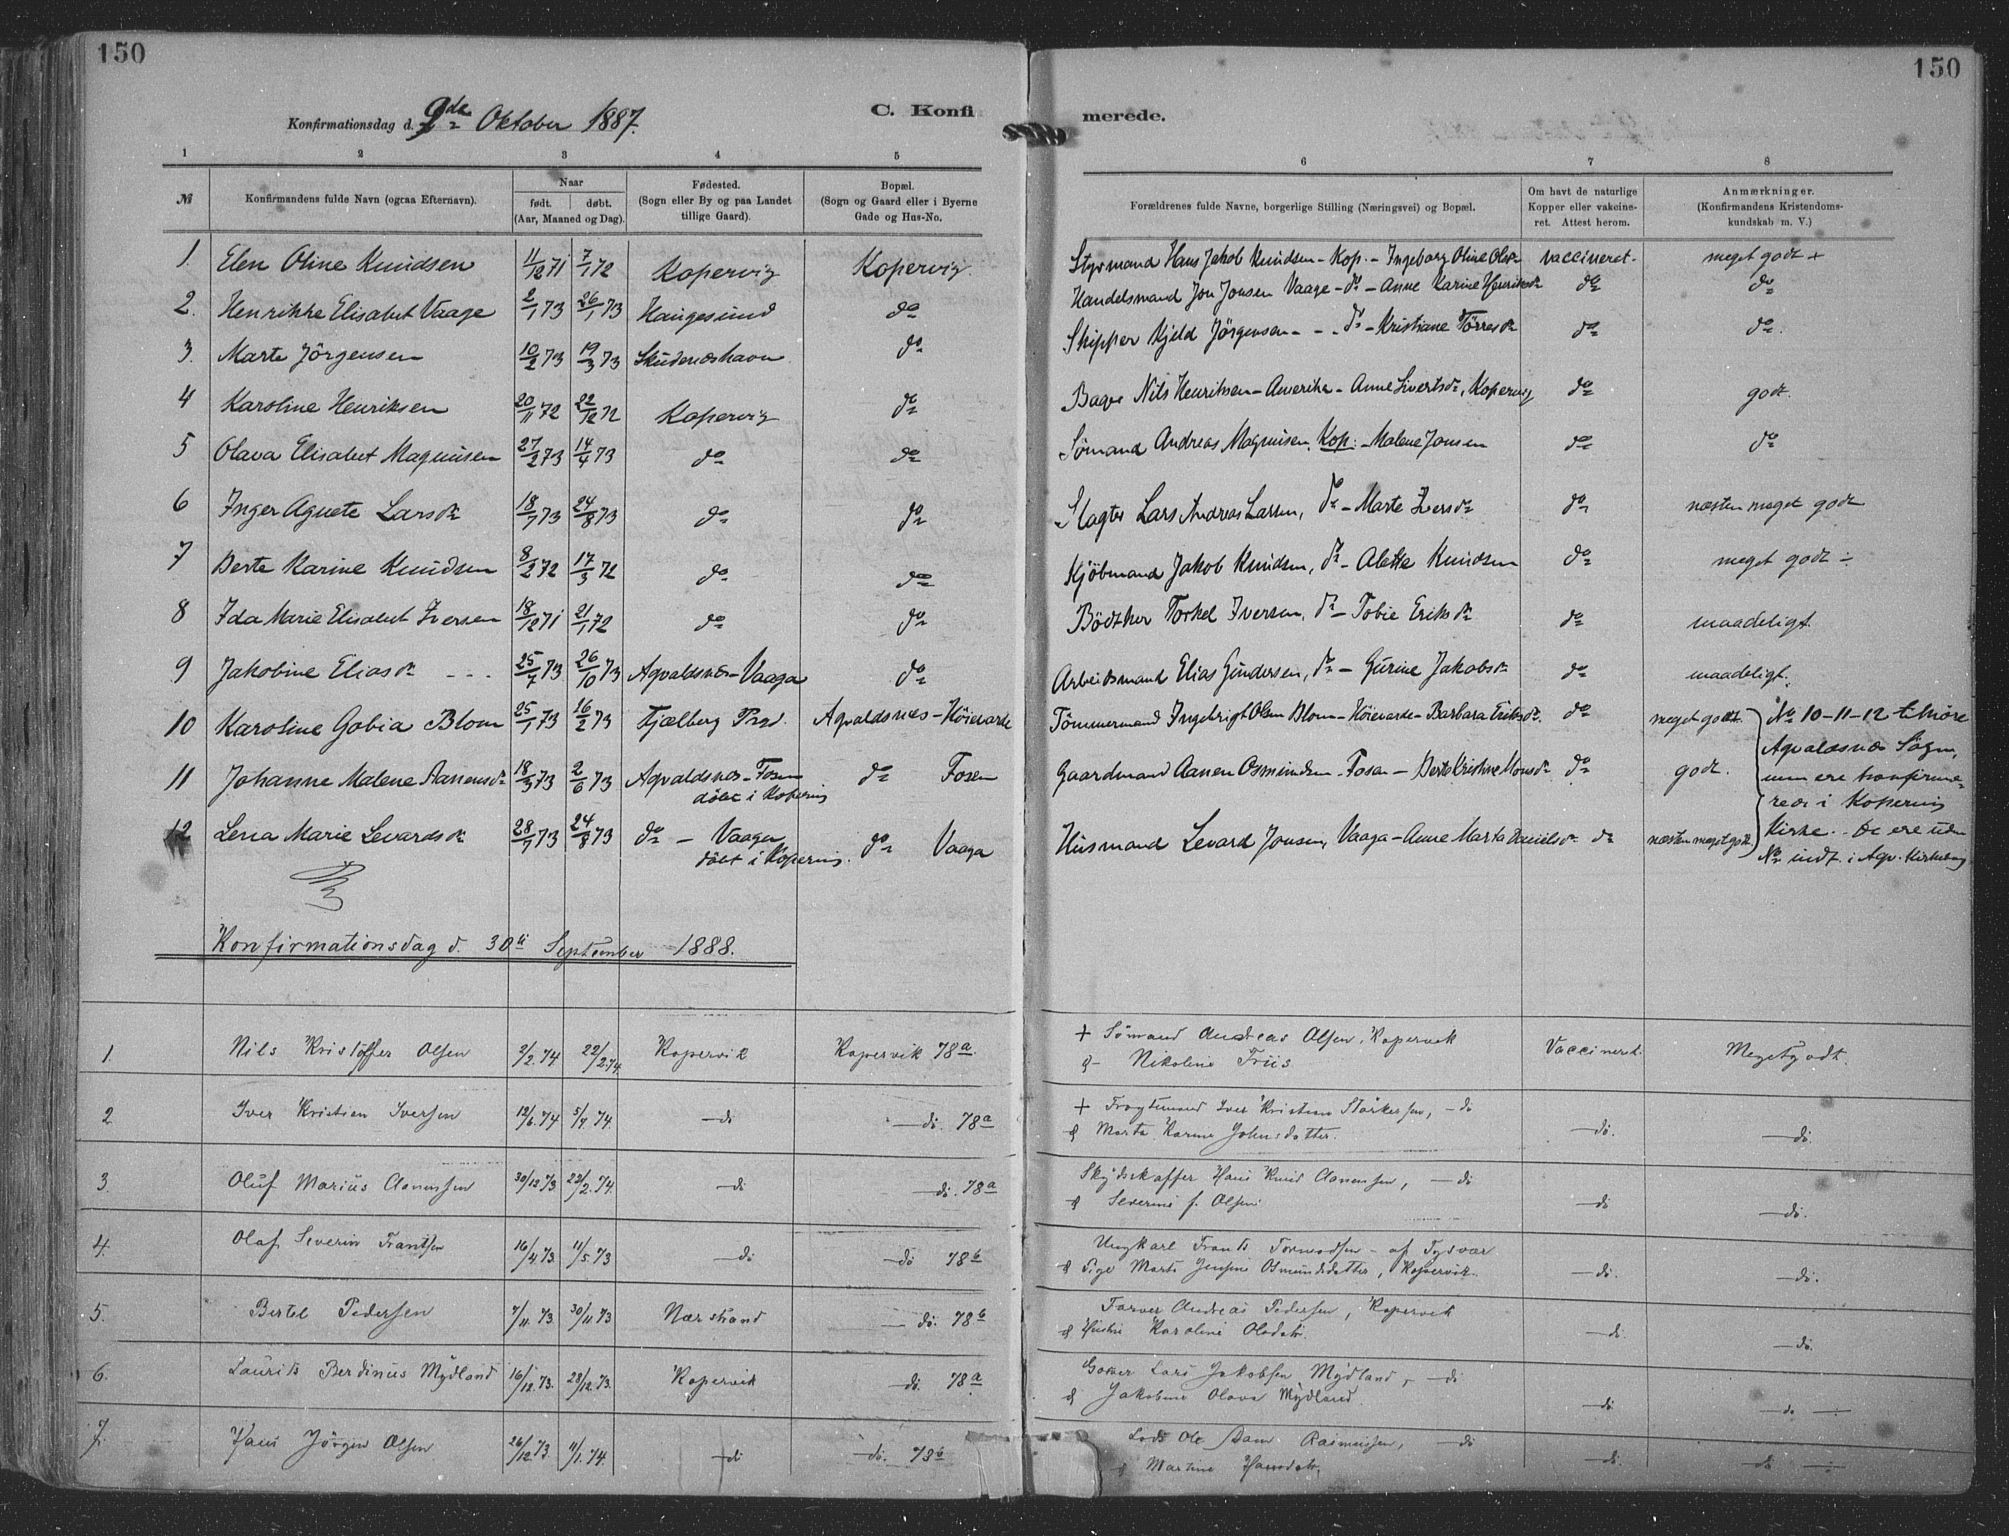 150
150
Konfirmationsdag d. 9de Oktober 1887.
C. Konfi
merede.
1 2 3 4 5 6 7 8
№ Konfirmandens fulde Navn (ogsaa Efternavn). Naar født. døbt. (Aar, Maaned og Dag). Fødested. (Sogn eller By og paa Landet tillige Gaard). Bopæl. (Sogn og Gaard eller i Byerne Gade og Hus-No. Forældrenes fulde Navne, borgerlige Stilling (Næringsvei) og Bopæl. Om havt de naturlige Kopper eller vakcineret. Attest herom. Anmærkninger. (Konfirmandens Kristendomskundskab m. V.)
1. Elen Oline Knudsen 11/12 71 7/1 72 Kopervig Kopervig Styrmand Hans Jakob Knudsen - Kop. - Ingeborg Oline Olsdr vaccineret. meget godt +
2. Henrikke Elisabet Vaage 2/1 73 26/1 73 Haugesund do Handelsmand Jon Jonsen Vaage - do - Anne Karine Henriksdr do do
3. Marte Jörgensen 10/2 73 19/3 73 Skudeneshavn do Skipper Kjeld Jörgensen - - do - Kristiane Törresdr do do.
4 Karoline Henriksen 20/11 72 22/12 72 Kopervig do Bager Nils Henriksen - Amerika - Anne Sivertsdr, Kopervig do godt.
5 Olava Elisabet Magnusen 27/2 73 14/4 73 do do Sömand Andreas Magnusen, Kop. - Malene Jonsen do do
6 Inger Agnete Larsdr 18/7 73 24/8 73 do do Slagter Lars Andreas Larsen, do - Marte Iversdr do næsten meget godt
7 Berte Karine Knudsen 8/2 72 17/3 72 do do Kjöbmand Jakob Knudsen, do - Alette Knudsen do meget godt ÷
8 Ida Marie Elisabet Iversen 18/12 71 21/1 72 do do Bödtker Torkel Iversen, do - Tobie Eriksdr do maadeligt.
9 Jakobine Eliasdr - - - 25/7 73 26/10 73 Agvaldsnes - Vaaga do Arbeidsmand Elias Gundersen, do - Gurine Jakobsdr do maadeligt.
10 Karoline Gobia Blom 25/1 73 16/2 73 Fjælberg Prgd. Agvaldsnes - Höievarde Tömmermand Ingebrigt Olsen Blom - Höievarde - Barbara Eriksdr. do meget godt.
11 Johanne Malene Aanensdr 18/3 73 2/6 73 Agvaldsnes - Fosen döbt i Kopervig do Fosen Gaardmand Aanen Osmundsen - Fosen - Berte Kristine Monsdr do godt.
12 Lena Marie Levardsdr 28/7 73 24/8 73 do - Vaaga döbt i Kopervig. do Vaaga Husmand Levard Jonsen, Vaaga - Anne Marta Danielsdr do næsten meget godt
No 10-11-12 tilhöre
Agvaldsnes Sogn,
men ere konfirme-
rede i Kopervig
Kirke. - De ere uden
No indf. i Agv. Kirkebog
Konfirmationsdag d. 30te September 1888.
1. Nils Kristoffer Olsen 2/2.74 22/2.74 Kopervik Kopervik 78a. + Sömand Andreas Olsen, Kopervik
& Nikoline Friis Vaccineret. Meget godt.
2. Iver Kristian Iversen 12/6.74 5/7.74. - do - do. 78a + Fragtemand Iver Kristian Störkersen, - do
& Marta Karine Johnsdatter. - do. - do.
3. Oluf Marius Aanensen 30/12.73 22/2.74. - do - do. 78a Skydsskaffer Hans Knud Aanensen, - do
& Severine f. Olsen - do - do.
4. Olaf Severin Frantsen 16/4.73. 11/5.73 - do - do 78b Ungkarl Frants Tormodsen - af Tysvær
& Pige Marta Jensine Osmundsdatter, Kopervik. - do. - do.
5. Bertel Pedersen 7/11.73. 30/11.73 Nærstrand - do. 78b Farver Andreas Pedersen, Kopervik
& Hustru Karoline Olsdatr. - do. - do.
6. Laurits Berdinus Mydland 16/12.73. 28/12.73. Kopervik do. 78a Garver Lars Jakobsen Mydland, - do
& Jakobine Olava Mydland. - do. - do - ÷
7. Hans Jörgen Olsen 26/12.73. 11/1.74. - do - do. 78b Lods Ole Rasmussen, - do
& Martine Hansdatr. - do. do ÷